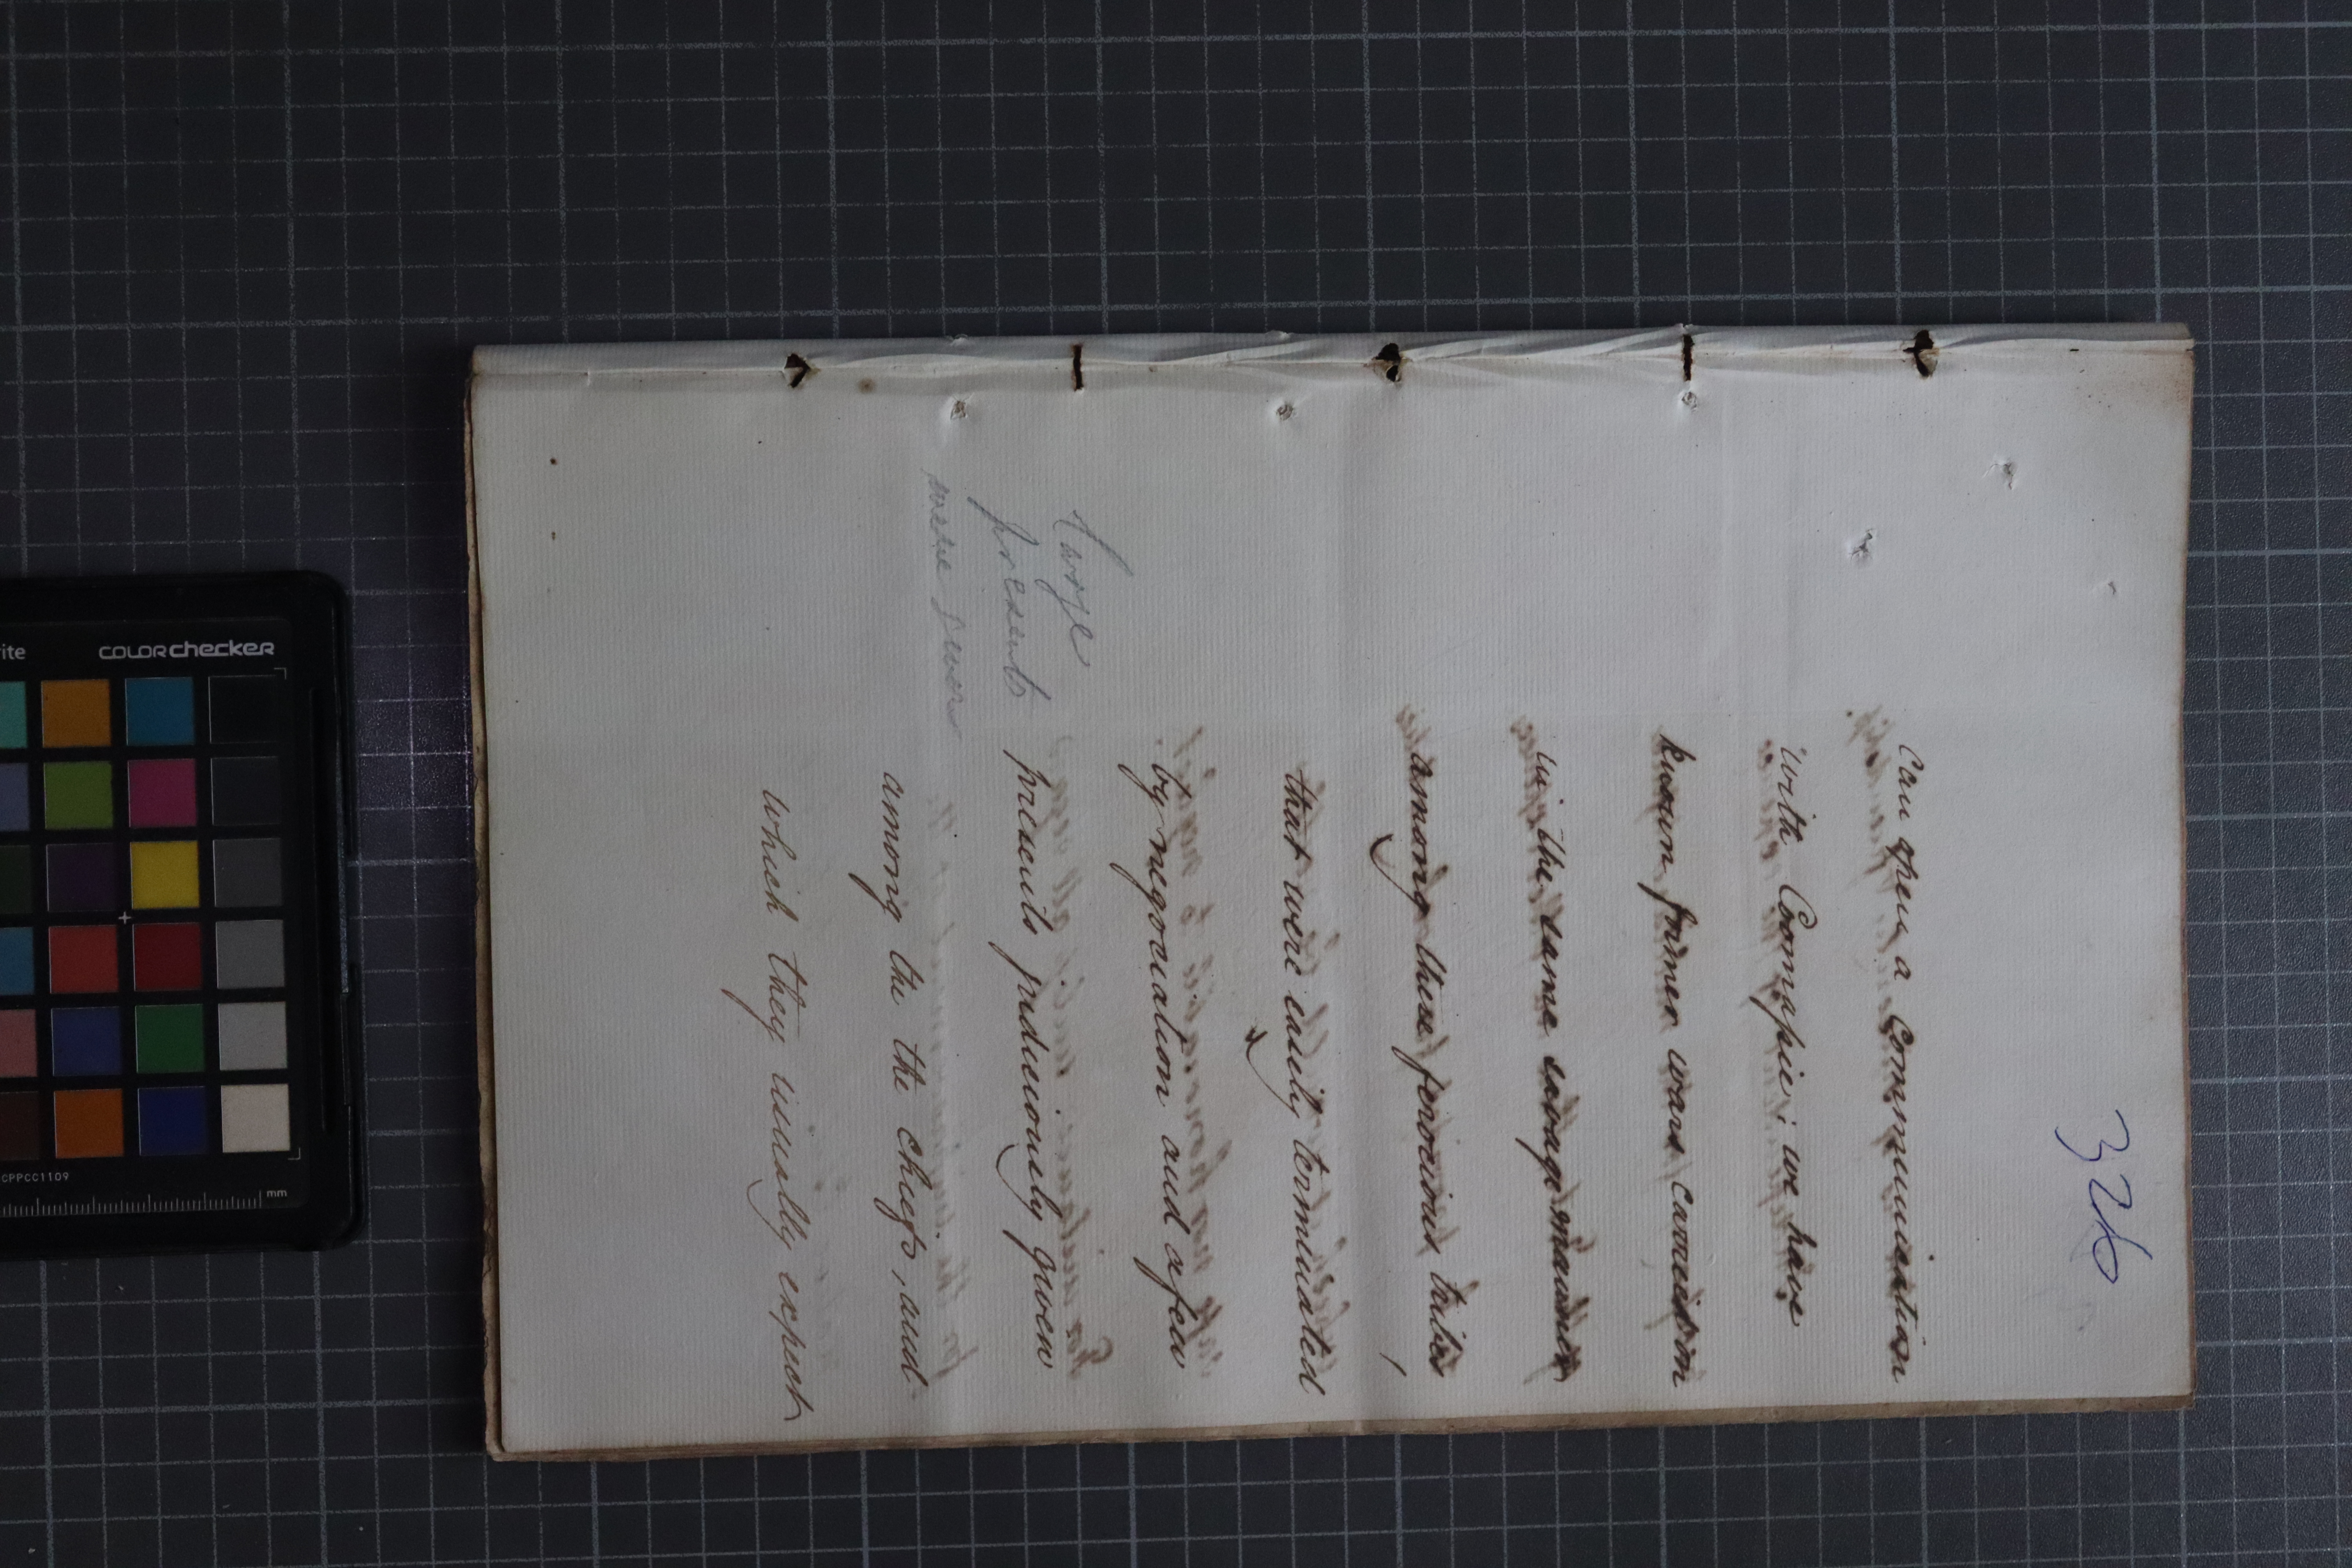 326
can open a Communication
with Coomassie; we have
known former wars carried on
in the same savage manner
among these ferocious tribes
that were easily terminated
by negociation and a few
presents judiciously given
among the the chiefs, and
which they usually expect
large
presents
were given
colorchecker
CPPCC1109
mm